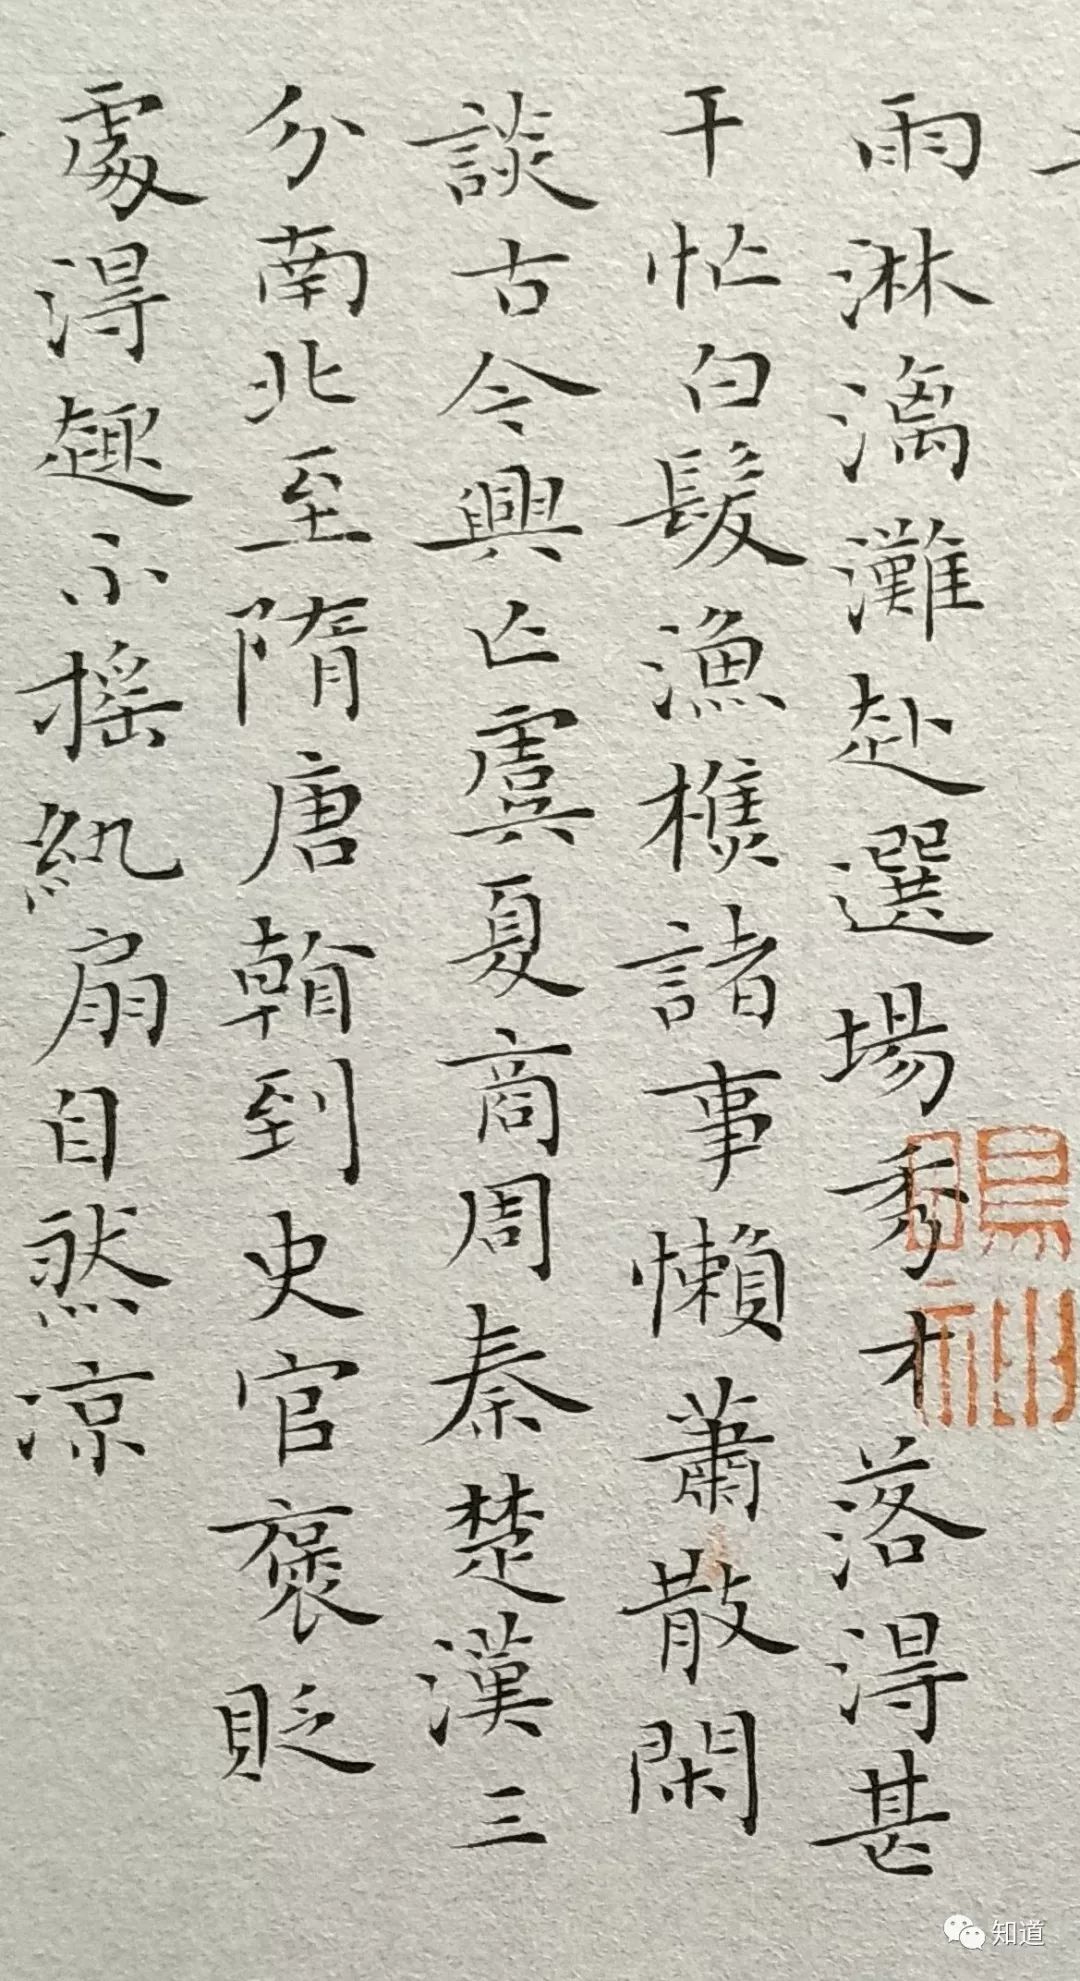 雨淋漓灘赴選場秀才落得甚
干忙白髮漁樵諸事懶蕭散閑
談古今興亡虞夏商周秦楚漢三
分南北至隋唐翰到史官褒貶
處得趣不摇紈扇自然凉
知道